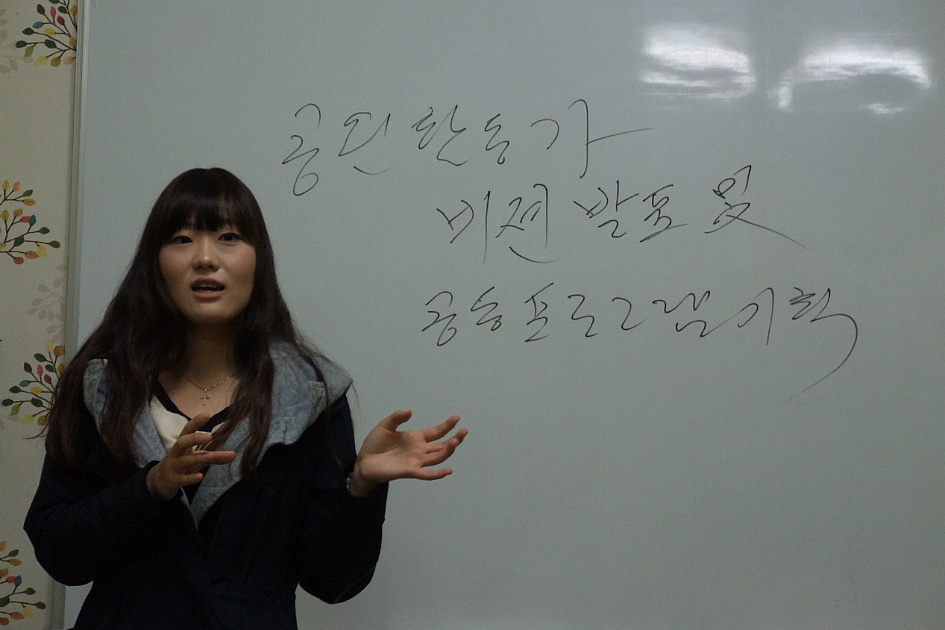 공단 활동가
비젼 발표 및
공동프로그램 기획